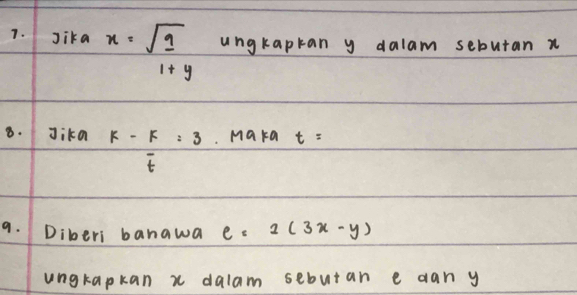 7. Jika x = √9 ungkapkan y dalam sebutan x
1 + y
8. Jika k - k : 3 . Maka t =
t
9. Diberi banawa e = 2 (3x - y)
ungkapkan x dalam sebutan e dan y